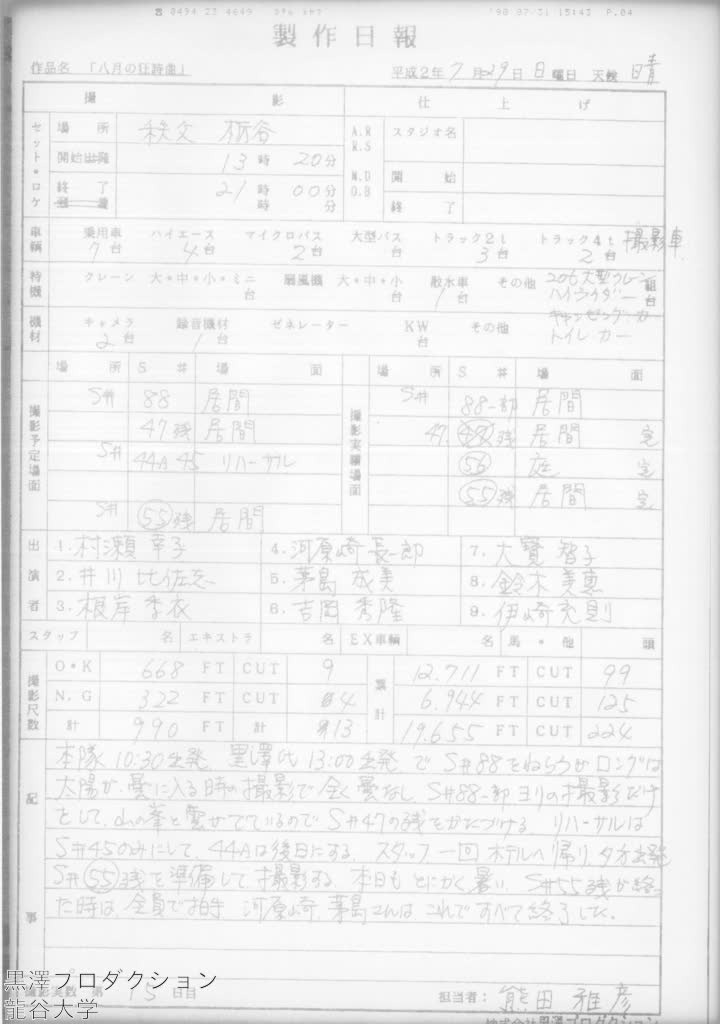 ☎ 0494 23 4649 '90 07/31 15:43 P.04
製作日報
作品名 「八月の狂詩曲」 平成2年7月29日日曜日 天候 晴
撮影 仕上げ
セット・ロケ 場所 秩父 栃谷 A.R R.S スタジオ名
開始 13時20分 N.D D.B 開始
終了 21時00分 終了
時 分
車輌 乗用車 ハイエース マイクロバス 大型バス トラック2t トラック4t 撮影車
7台 4台 2台 台 3台 2台
特機 クレーン 大・中・小・ミニ 扇風機 大・中・小 散水車 その他 206大型クレーン
台 台 1台 ハイライダー 組台
機材 キャメラ 録音機材 ゼネレーター KW その他 キャンピングカー
2台 1台 台 トイレカー
場所 S# 場面 場所 S# 場面
撮影予定場面 撮影実績場面
S# 88 居間 S# 88一部 居間
47残 居間 47残 居間 完
S# 44A 45 リハーサル 56 庭 完
55残 居間 完
S# 55残 居間
出演者
1.村瀬 幸子 4.河原崎 長一郎 7.大寶 智子
2.井川 比佐志 5.茅島 成美 8.鈴木 美恵
3.根岸 季衣 6.吉岡 秀隆 9.伊崎 充則
スタッフ 名 エキストラ 名 EX車輌 名 馬・他 頭
撮影尺数 累計
O・K 668 FT CUT 9 12.711 FT CUT 99
N.G 322 FT CUT 4 6.944 FT CUT 125
計 990 FT 計 13 19.655 FT CUT 224
記事
本隊10:30出発、黒澤氏13:00出発でS#88をねらうがロングは
太陽が雲に入る時の撮影で全く雲なし、S#88一部ヨリの撮影だけ
をして、山の峯と雲がでているのでS#47の残をかたづける。リハーサルは
S#45のみにして、44Aは後日にする。スタッフ一回ホテルへ帰り、夕方出発
S#55残を準備して撮影する。本日もとにかく暑い。S#55残が終っ
た時は、全員で拍手 河原崎、茅島さんは これですべて終了した。
撮影実数 第15日目 担当者: 熊田 雅彦
株式会社黒澤プロダクション
黒澤プロダクション
龍谷大学